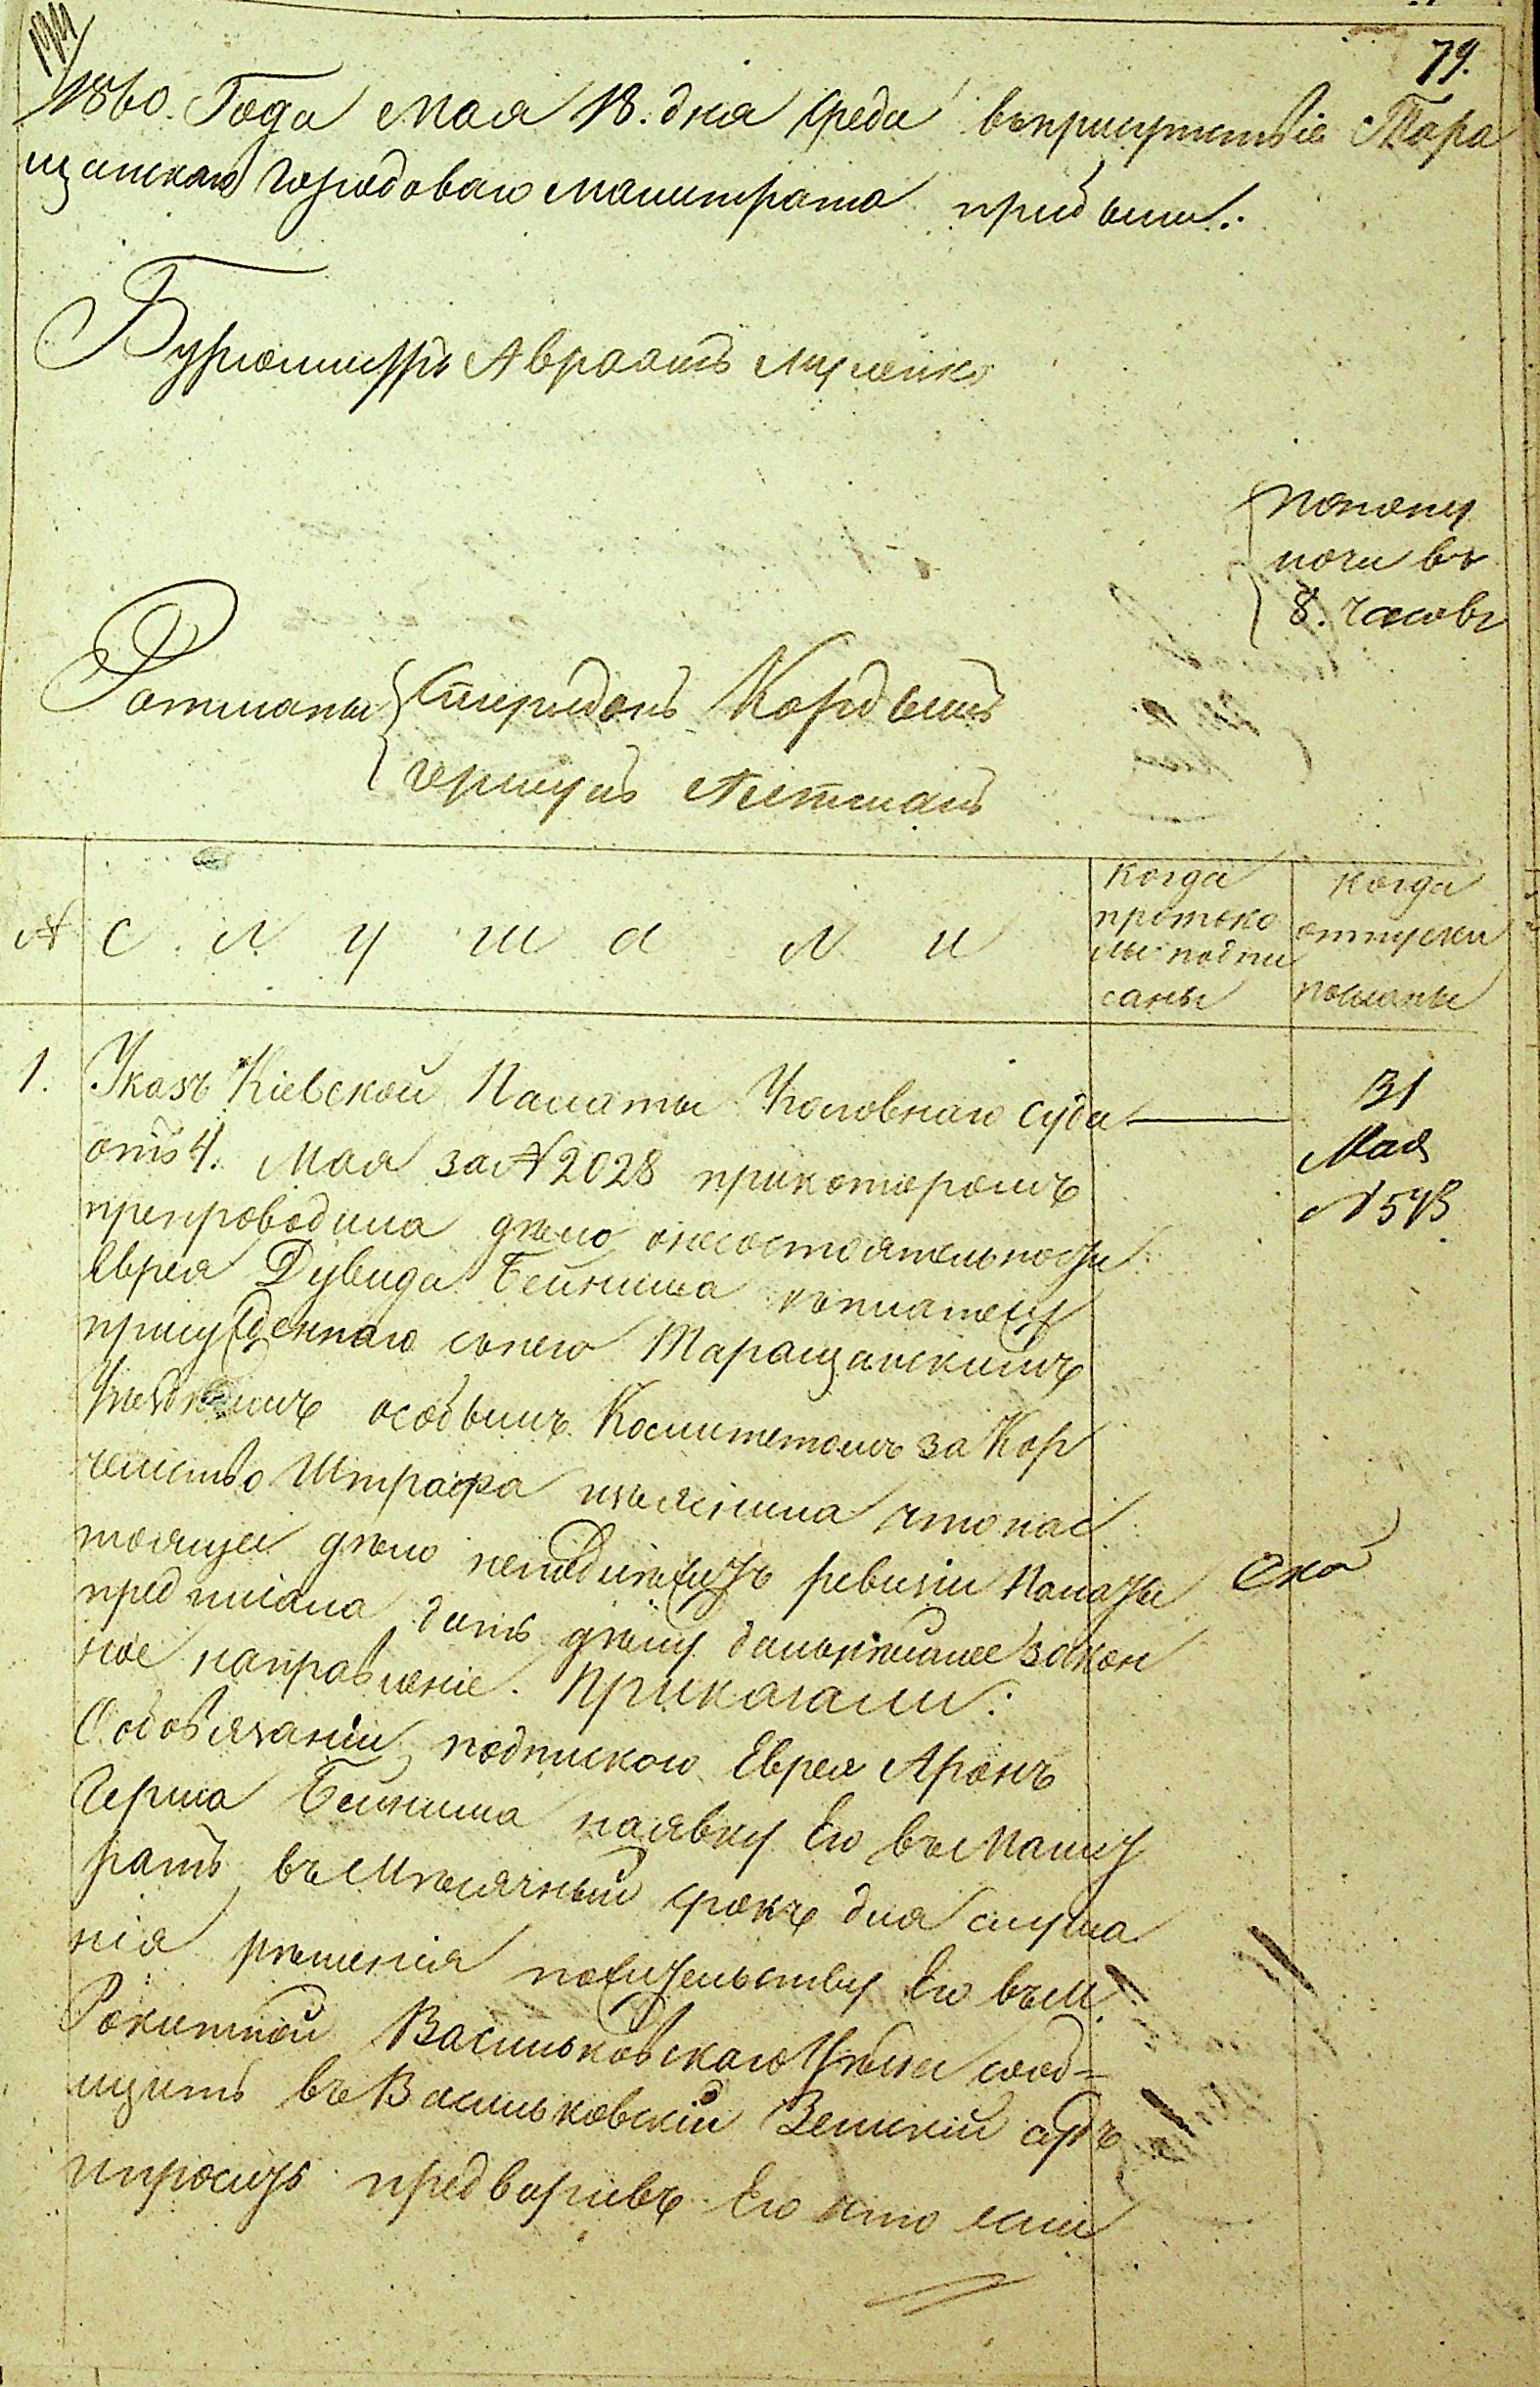 79.
1860. Года Мая 18. дня Среда въприсутствіе Тара
щанскаго городоваго магистрата прибыли:
Бургомистръ Авраамъ
пополу
ночи въ
8. часовъ
Ратманы Спиридонъ Кордышъ
Гершунъ
№ С л у ш а л и
когда
протоко
лы подпи
саны
когда
отпуски
посланы
1. Указъ Кіевской Палаты Уголовнаго Суда
отъ 4. Мая за № 2028 прикоторомъ
препроводила дѣло онесостоятельности
Еврея Дувида Бейниша къплатежу
присужденнаго сънего Таращанскимъ
Уѣзднымъ особымъ Комитетомъ за Кор
чемство Штрафа изъяснила что нас
тоящее дѣло неподлежитъ ревизіи Палаты
предписала дать дѣлу дальнѣйшее закон
ное направленіе. Приказали:
Ообовязаніи подпискою Еврея Аронъ
Герша Бейниша наявку Его въ Магист
ратъ въ Мѣсячный срокъ для слуша
нія рѣшенія пожительству Его въ М.
Рокитной Васильковскаго Уѣзда сооб=
щить въ Васильковскій Земскій судъ
ипросить предваривъ Его что если
31
Мая
№ 573